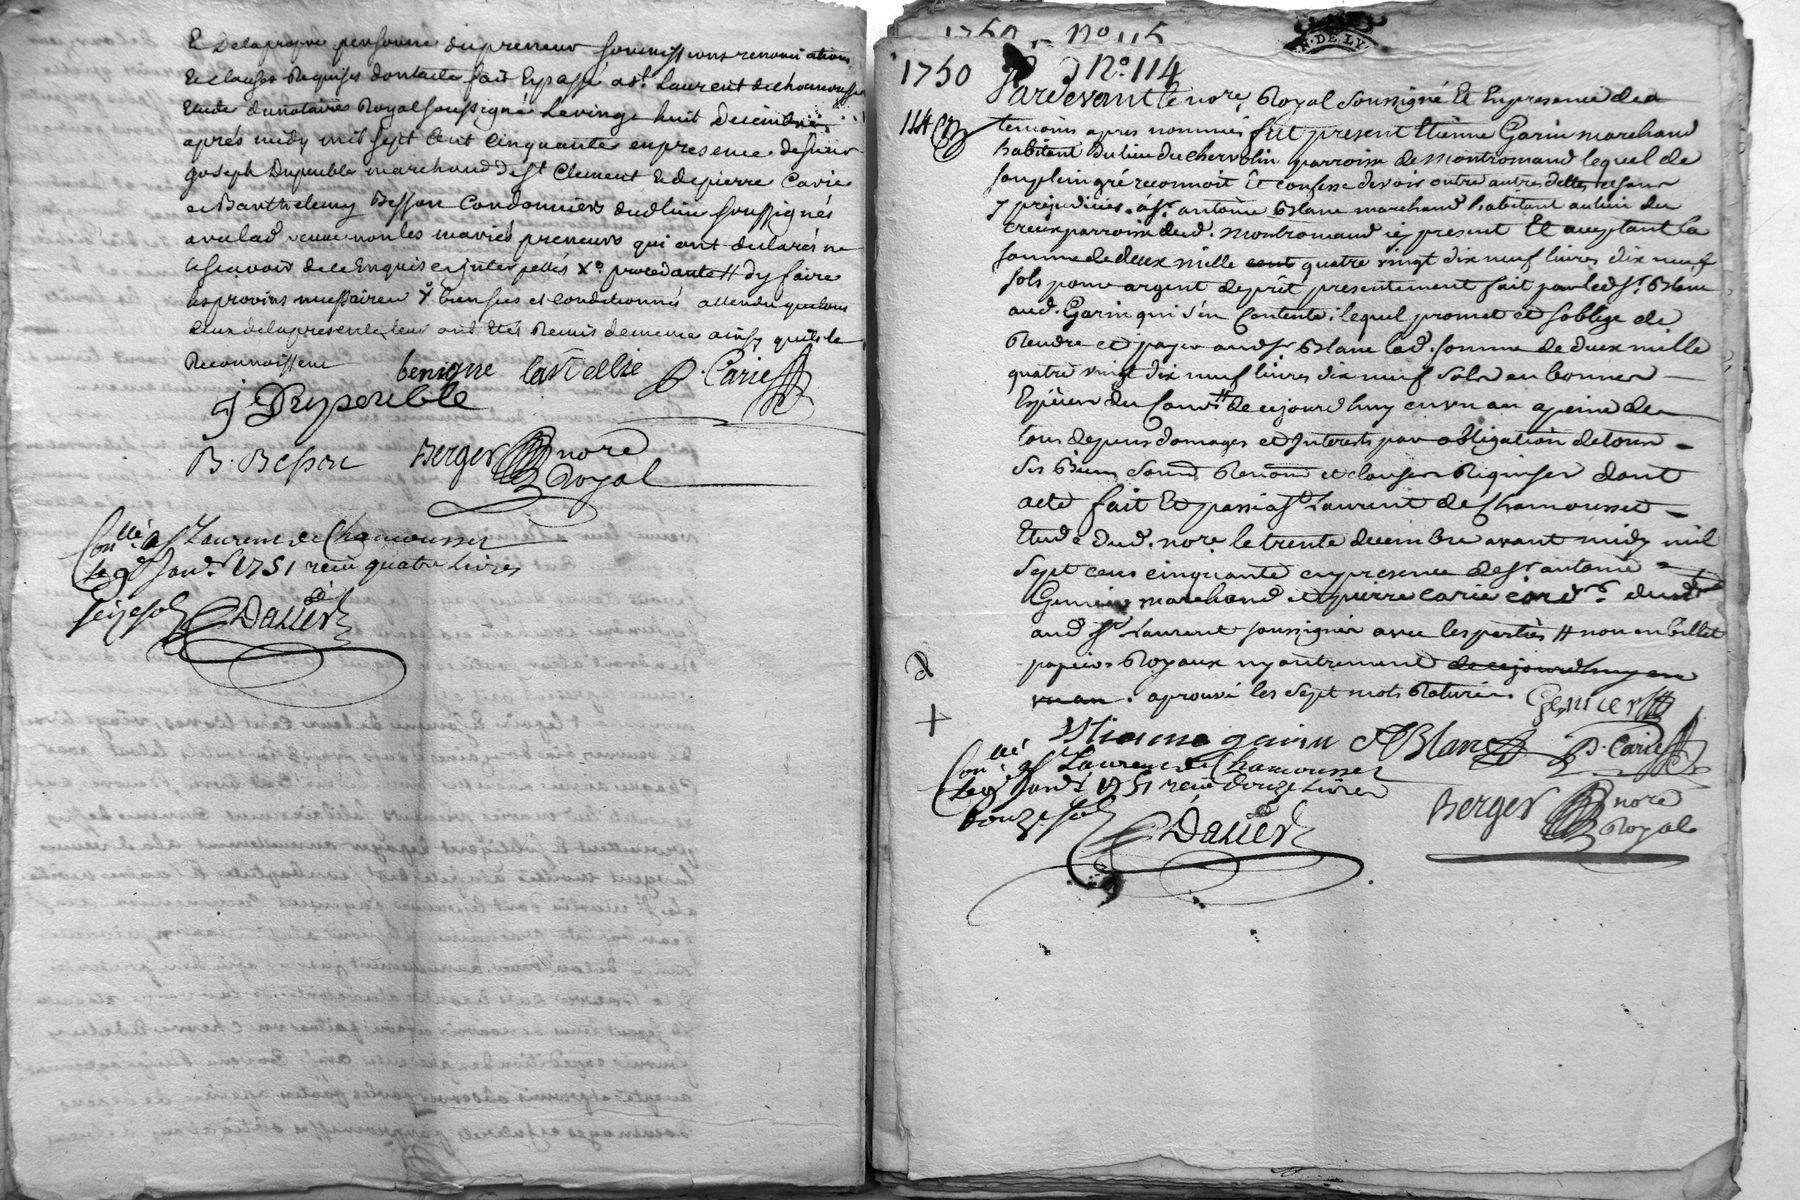 Et de la propre personne du preneur soumissions renonciations
Et clauses Requises dont acte fait Et passé a st. Laurent de chamousset
Etude du notaire Royal soussigné Le vingt huit decembre
aprés midy mil sept cent cinquante en presence de sieur
joseph Dupeuble marchand de st Clement et de pierre Carie
et Barthelemy Besson Cordonniers dud lieu soussignés
avec lad. veuve non les mariés preneurs qui ont declarés ne
scavoir de ce Enquis et interpellés procedante # dy faire
les provins necessaires
ceux de la presente leur ont Etés Remis de meme ainsy quils le
Reconnoissent benigne P. Carie
j Dupeuble
B. Besson Berger nore
Royal
Con.llé a st Laurent de Chamousset
le 9e janv.r 1751 reçu quatre Livres
seize sols
Dalier
1750 - No. 115
1750 No. 114
Pardevant le nore. Royal soussigné Et En presence des
114 temoins apres nommés fut present Etienne Garin marchand
habitant du lieu du chervolin parroisse de montromand lequel de
son plein gré reconnoit et confesse devoir outre autres dettes et sans
y prejudicier a sr. antoine Blanc marchand habitant au lieu du
creux parroisse dud. montromand icy present Et acceptant la
somme de deux mille cent quatre vingt dix neuf livres dix neuf
sols pour argent de prêt presentement fait par led sr. Blanc
aud. Garin qui s'en Contente, lequel promet et soblige de
Rendre et payer aud sr Blanc lad. somme de deux mille
quatre vingt dix neuf livres dix neuf sols en bonnes
Espèces du Cours # de cejourdhuy en un an a peine de
tous depens domages et Interests par obligation de tous
ses biens soum. Renon. et clauses Requises dont
acte fait Et passé a st Laurent de chamousset
Etude dud. nore. le trente decembre avant midy mil
sept cens cinquante en presence de sr antoine
Genier marchand et pierre carie cord.r
aud st Laurent soussignés avec les parties # non en billet
papiers Royaux ny autrement de cejourdhuy en
un an. aprouvé les sept mots Raturés. Genier
Etienne garin A Blanc P. Carie
Con.llé a st Laurent de Chamousset
le 9e janv.r 1751 reçu Douze Livres
douze sols
Berger nore
Royal
Dalier